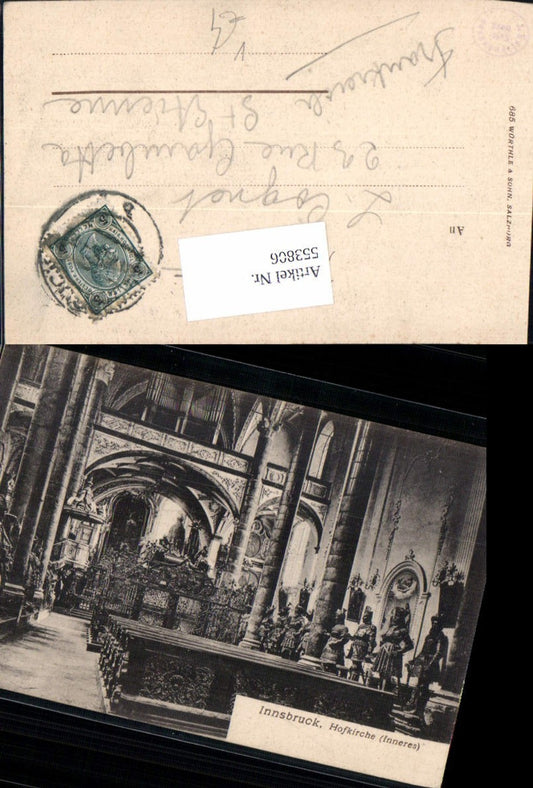 685 WÜRTHLE & SOHN, SALZBURG
An
L. Cognet
23 Rue Gambetta
St Etienne
Artikel Nr.
553806
Innsbruck, Hofkirche (Inneres)